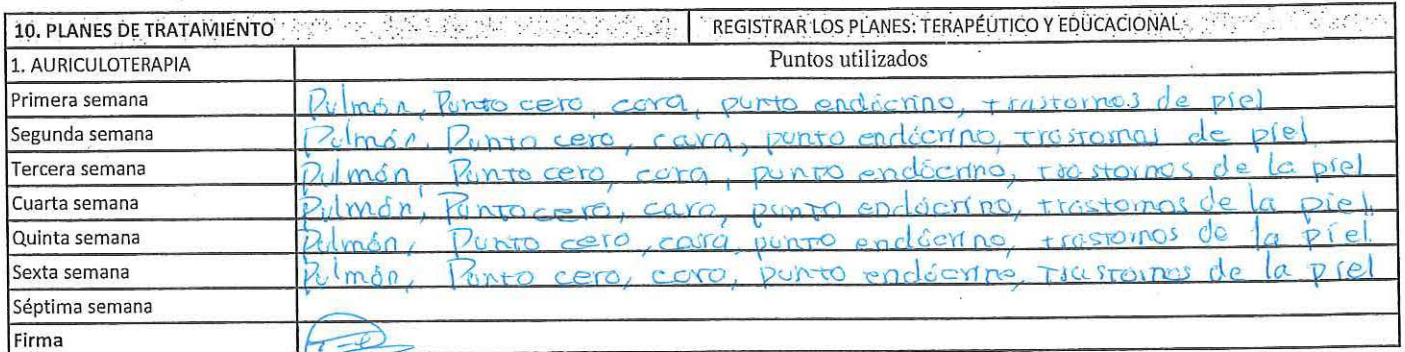 10. PLANES DE TRATAMIENTO REGISTRAR LOS PLANES: TERAPÉUTICO Y EDUCACIONAL
1. AURICULOTERAPIA Puntos utilizados
Primera semana Pulmón, Punto cero, cara, punto endócrino, trastornos de piel
Segunda semana Pulmón, Punto cero, cara, punto endócrino, trastornos de piel
Tercera semana Pulmón, Punto cero, cara, punto endócrino, trastornos de la piel
Cuarta semana Pulmón, Punto cero, cara, punto endócrino, trastornos de la piel.
Quinta semana Pulmón, Punto cero, cara, punto endócrino, trastornos de la piel.
Sexta semana Pulmón, Punto cero, cara, punto endócrino, trastornos de la piel
Séptima semana
Firma